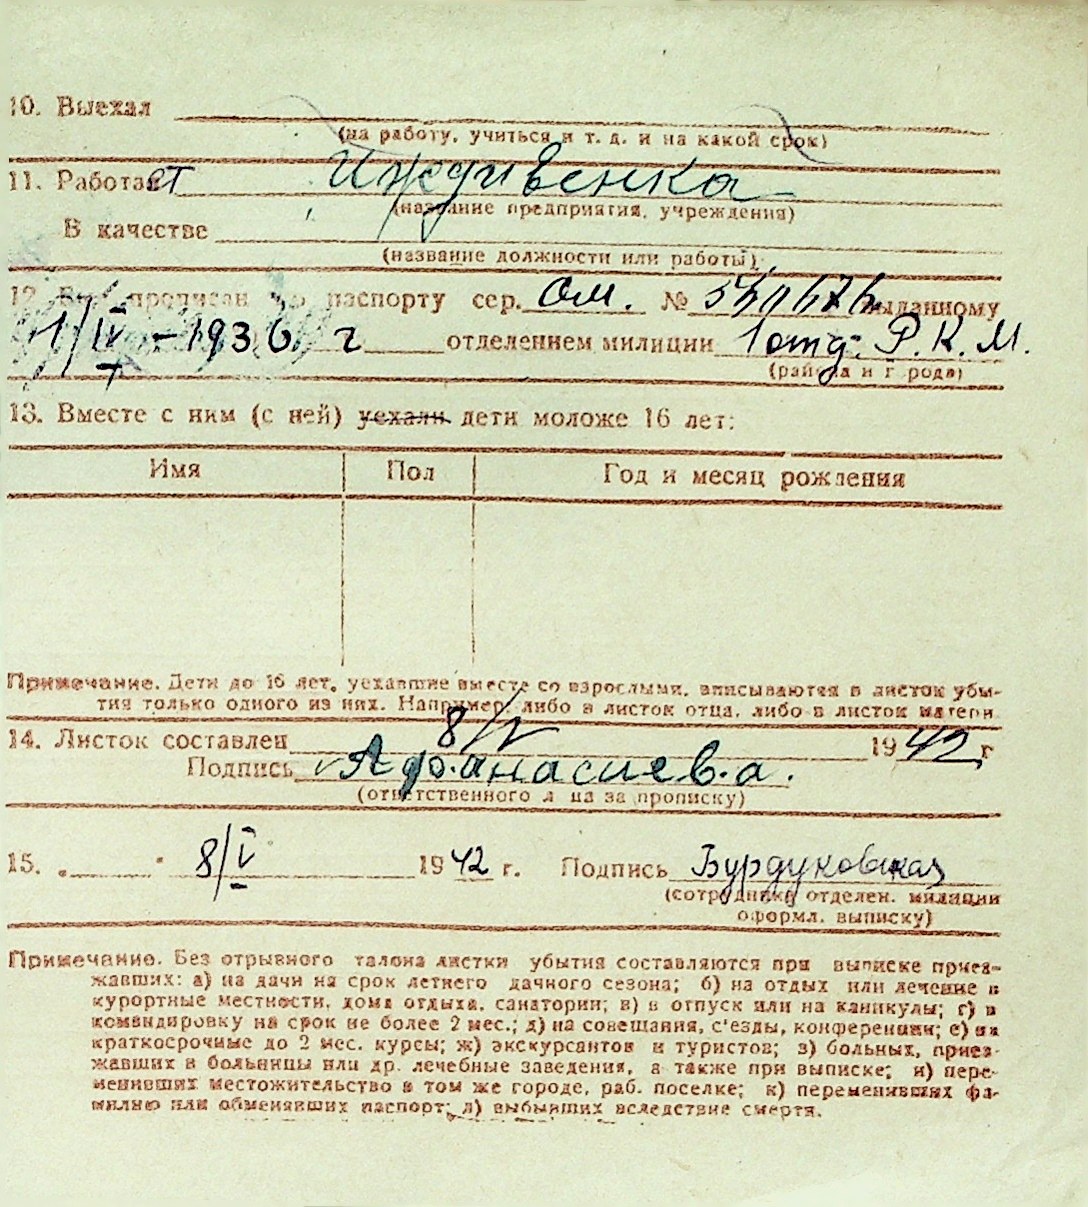 10. Выехал
(на работу, учиться и т. д. и на какой срок)
11. Работает Иждивенка
(название предприятия, учреждения)
В качестве
(название должности или работы)
12. Был прописан по паспорту сер. ОМ. № выданному
1/IV – 1936 г отделением милиции 1 отд. Р.К.М.
(района и города)
13. Вместе с ним (с ней) уехали дети моложе 16 лет:
Имя Пол Год и месяц рождения
Примечание. Дети до 16 лет, уехавшие вместе со взрослыми, вписываются в листок убы-
тия только одного из них. Например, либо в листок отца, либо в листок матери
14. Листок составлен 8/V 1942 г
Подпись Афанасиева.
(ответственного лица за прописку)
15. „ " 8/V 1942 г. Подпись Бурдуковская
(сотрудника отделен. милиции
оформл. выписку)
Примечание. Без отрывного талона листки убытия составляются при выписке приез-
жавших: а) на дачи на срок летнего дачного сезона; б) на отдых или лечение в
курортные местности, дома отдыха, санатории; в) в отпуск или на каникулы; г) в
командировку на срок не более 2 мес.; д) на совещания, с'езды, конференции; е) на
краткосрочные до 2 мес. курсы; ж) экскурсантов и туристов; з) больных, приез-
жавших в больницы или др. лечебные заведения, а также при выписке; и) пере-
менивших местожительство в том же городе, раб. поселке; к) переменивших фа-
милию или обменявших паспорт; л) выбывших вследствие смерти.